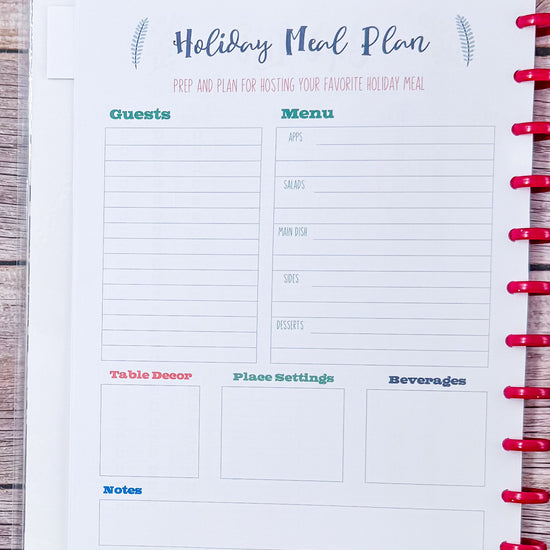 Holiday Meal Plan
PREP AND PLAN FOR HOSTING YOUR FAVORITE HOLIDAY MEAL
Guests
Menu
APPS
SALADS
MAIN DISH
SIDES
DESSERTS
Table Decor
Place Settings
Beverages
Notes